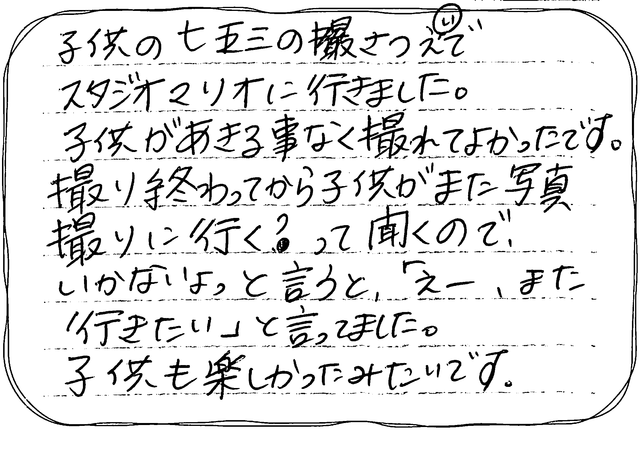 子供の七五三の撮さつえでい
スタジオマリオに行きました。
子供があきる事なく撮れてよかったです。
撮り終わってから子供がまた写真
撮りに行く?って聞くので、
いかないよっと言うと、「えー、また
行きたい」と言ってました。
子供も楽しかったみたいです。